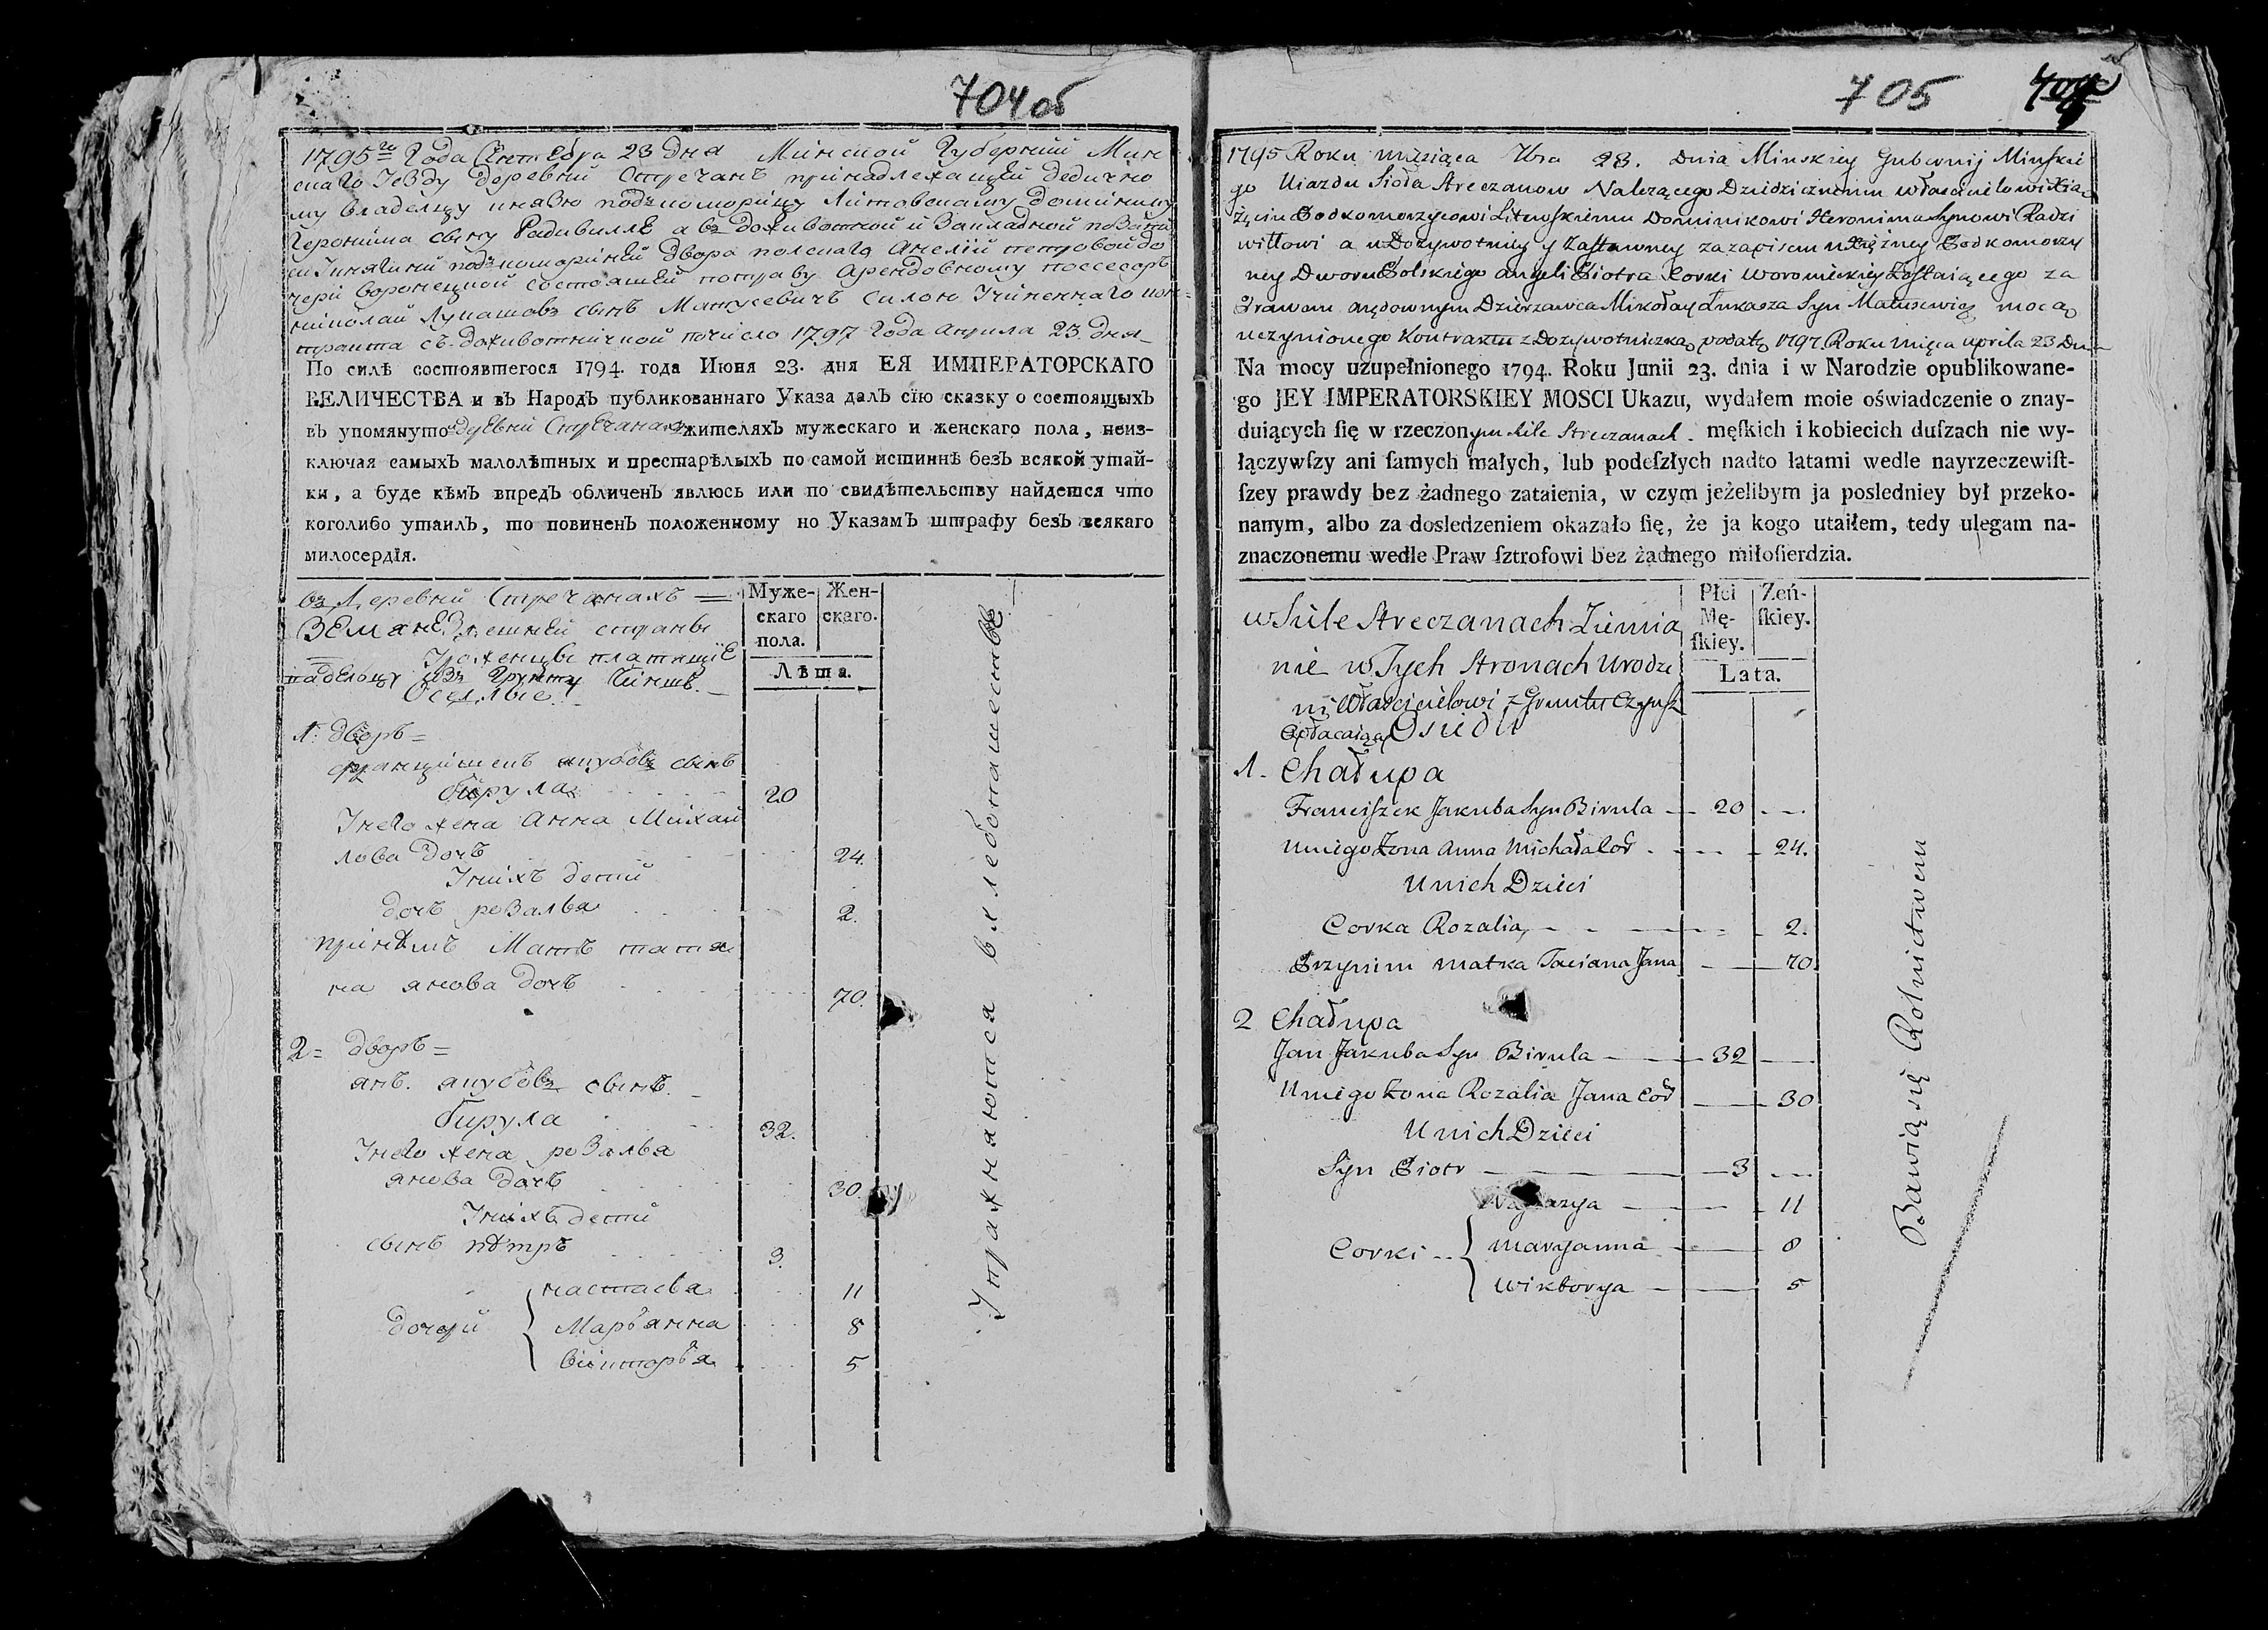 704 об
1795го Года Сентебра 23 Дня Минской Губернии Мин
скаго Уезду деревни Стречанъ принадлежащей дедично
му владельцу князю подкоморицу Литовскому доминику
Героніма сыну Радивиллѣ а въ доживотной и Закладной
подкоморіней двора полскаго Анелии петровой до
чери воронецкой состоящей по праву Арендовному поссесоръ
николай Лукашовъ сынъ Матусевичъ силою Учиненнаго кон=
тракта съ доживотничкой по число 1797 Года Априла 23 дня
По силѣ состоявшегося 1794. года Июня 23. дня ЕЯ ИМПЕРАТОРСКАГО
ВЕЛИЧЕСТВА и въ Народъ публикованнаго Указа далъ сію сказку о состоящыхъ
въ упомянутой деревни Стречанахъ жителяхъ мужескаго и женскаго пола, неиз-
ключая самыхъ малолѣтныхъ и престарѣлыхъ по самой истиннѣ безъ всякой утай-
ки, а буде кѣмъ впредъ обличенъ явлюсь или по свидѣтельству найдется что
коголибо утаилъ, то повиненъ положенному по Указамъ штрафу безъ всякаго
милосердія.
въ Деревни Стречанахъ =
Земяне здешней страны
Уроженцы платящіе
владельцу изъ Грунту Чиншъ
Оселлые
Муже-
скаго
пола.
Жен-
скаго.
Лѣта.
1. дворъ =
францишекъ якубовъ сынъ
бирула 20
У него жена Анна Михай
лова дочь 24.
У нихъ дети
дочь розалья 2.
при немъ Мать татья
на янова дочь 70.
2 = дворъ =
янъ якубовъ сынъ
бирула 32.
У него жена розалья
янова дочь 30.
У нихъ дети
сынъ петръ 3.
дочери { настасья 11
Марьянна 8
викторья 5
Упражняются въ хлебопашестве
705
1795 Roku miesiąca 7bra 23. Dnia Minskiey Gubernij Minskie
go Uiazdu Sioła Streczanow Należącego Dziedzicznemu właścicielowi Xią
żęciu Podkomorzycowi Litewskiemu Dominikowi Heronima Synowi Radzi
wiłłowi a w Dożywotniey y Zastawney za zapisem Xiężney Podkomorzy
ney Dworu Polskiego angeli Piotra Corki Woronieckiey Zostaiącego za
Prawem arędownym Dzierzawca Mikołay Łukasza Syn Matusewicz mocą
uczynionego Kontraktu z Dożywotniczką podatę 1797 Roku mięa aprila 23 Dnia
Na mocy uzupełnionego 1794. Roku Junii 23. dnia i w Narodzie opublikowane-
go JEY IMPERATORSKIEY MOSCI Ukazu, wydałem moie oświadczenie o znay-
duiących ſię w rzeczonym siele Streczanach męſkich i kobiecich duſzach nie wy-
łączywſzy ani ſamych małych, lub podeſzłych nadto latami wedle nayrzeczewiſt-
ſzey prawdy bez żadnego zataienia, w czym jeżelibym ja posledniey był przeko-
nanym, albo za dosledzeniem okazało ſię, że ja kogo utaiłem, tedy ulegam na-
znaczonemu wedle Praw ſztrofowi bez żadnego miłoſierdzia.
w Siele Streczanach Ziemia
nie w Tych Stronach Urodze
ni Właścicielowi z Gruntu Czynsz
Opłacaiący Osiedli
Płci
Mę-
ſkiey.
Zeń-
ſkiey.
Lata.
1. Chałupa
Franciszek Jakuba Syn Birula — 20
U niego Żona Anna Michała Cor 24.
U nich Dzieci
Corka Rozalia 2.
Przy nim matka Taciana Jana 70
2 Chałupa
Jan Jakuba Syn Birula — 32
U niego Żona Rozalia Jana Cor 30
U nich Dzieci
Syn Piotr — 3
Corki { Nastazya 11
Maryanna 8
Wiktorya 5
Bawią się Rolnictwem